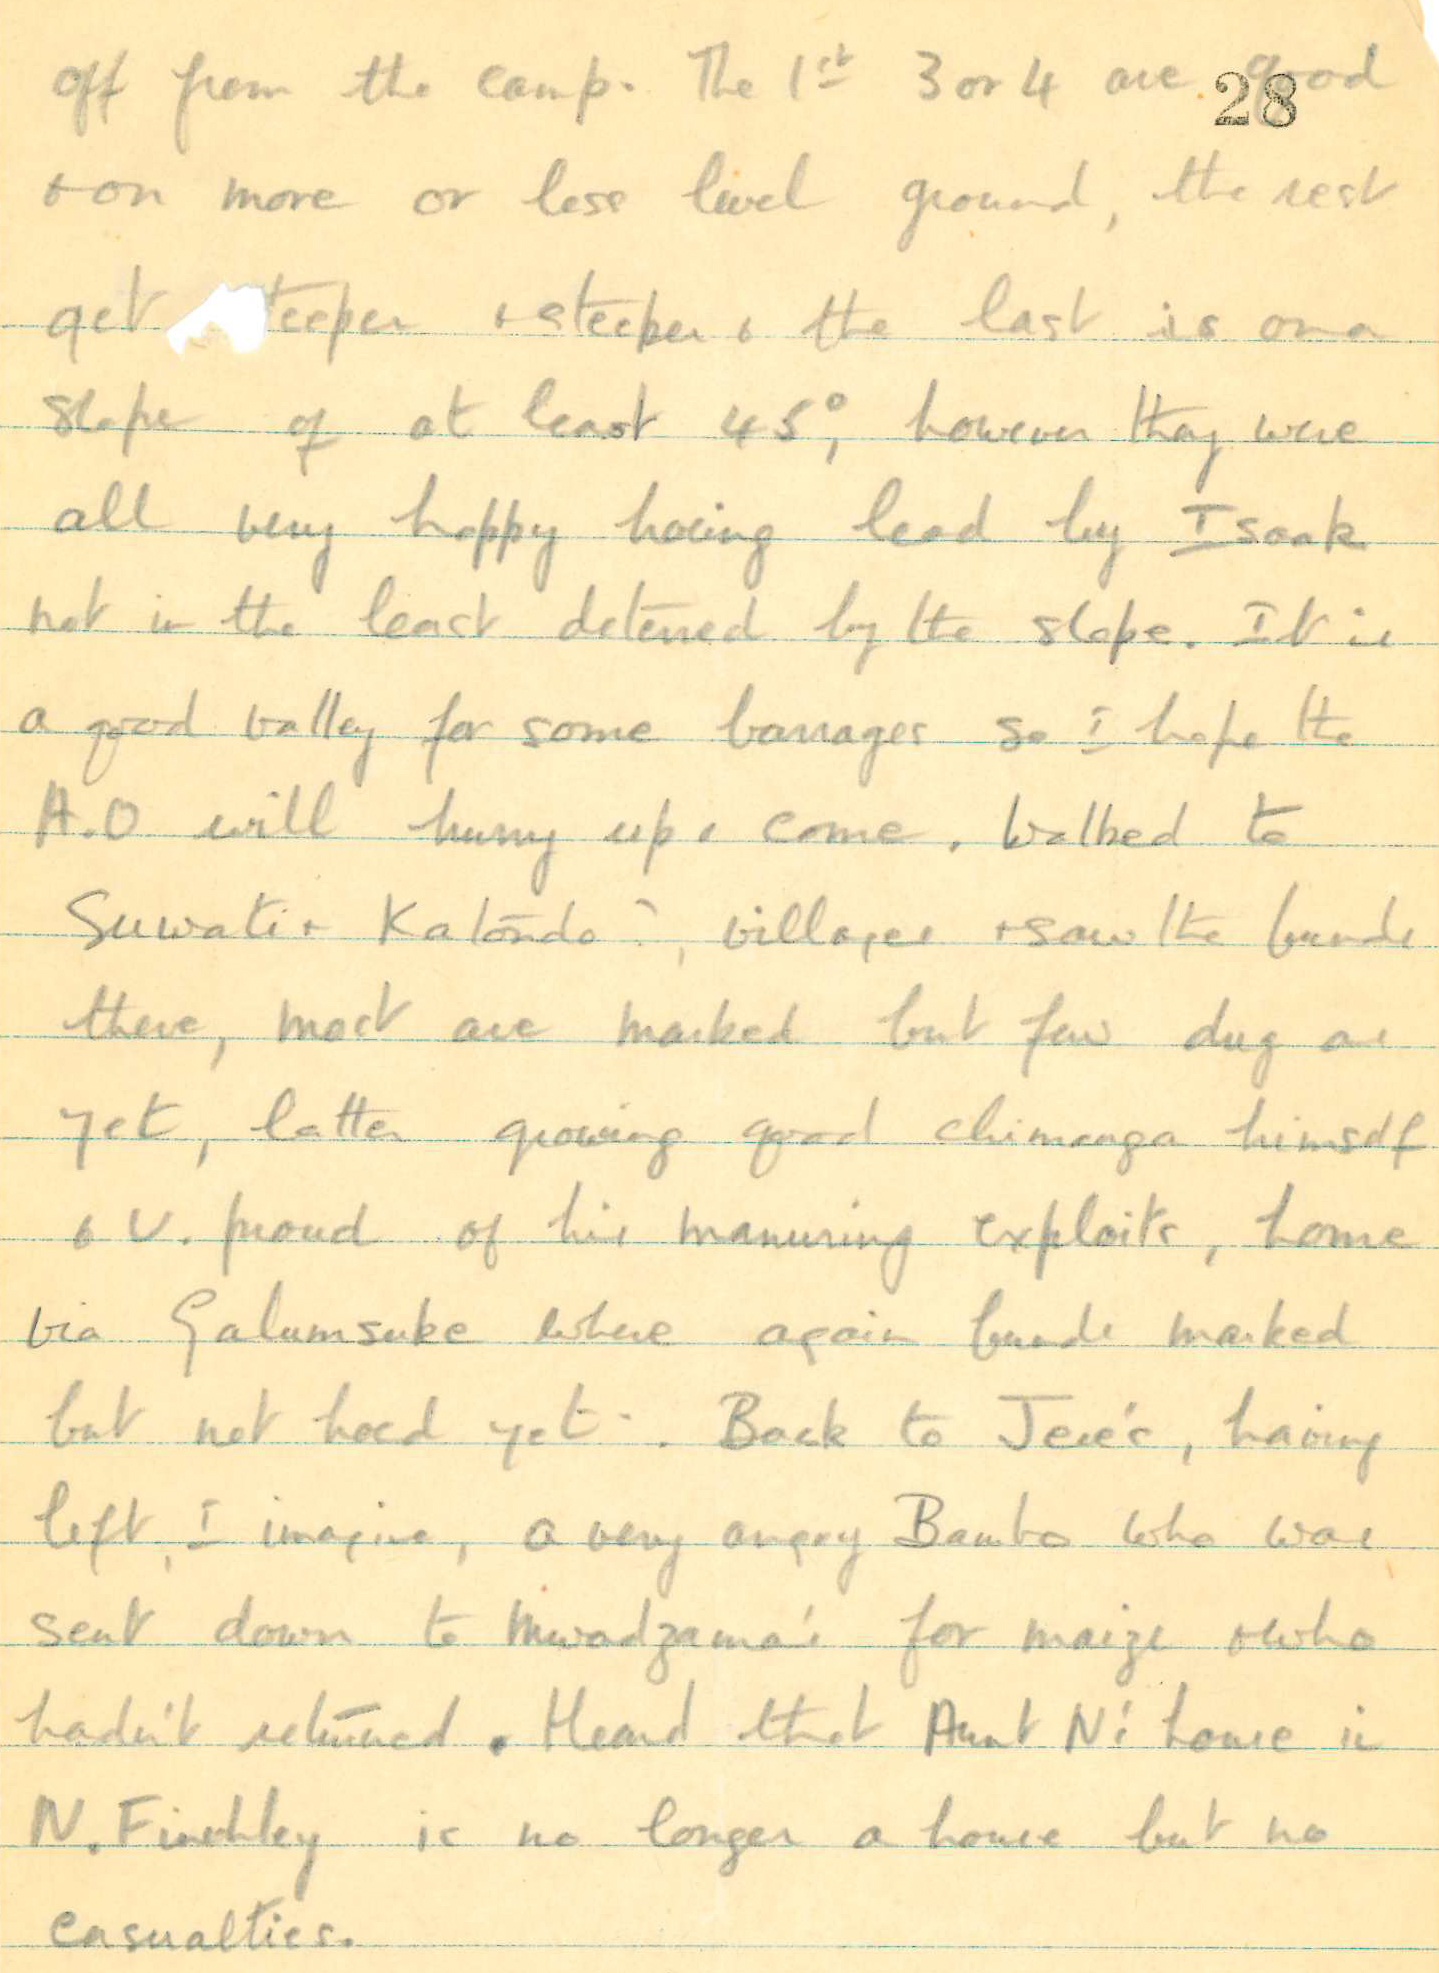 off from the camp. The 1st 3 or 4 are good
28
+ on more or less level ground, the rest
get teeper + steeper + the last is on a
slope of at least 45°, however they were
all very happy hoeing lead by Isaak
not in the least deterred by the slope. It is
a good valley for some barrages so I hope the
A.O will hurry up + come. Walked to
Suwati + Katondo?, villages + saw the bunds
there, most are marked but few dug as
yet, latter growing good chimanga himself
+ v. proud of his manuring exploits, home
via Galumsuke where again bunds marked
but not hoed yet. Back to Jere's, having
left, I imagine, a very angry Bambo who was
sent down to Mwadzama's for maize + who
hadn't returned. Heard that Aunt N's house in
N. Finchley is no longer a house but no
casualties.